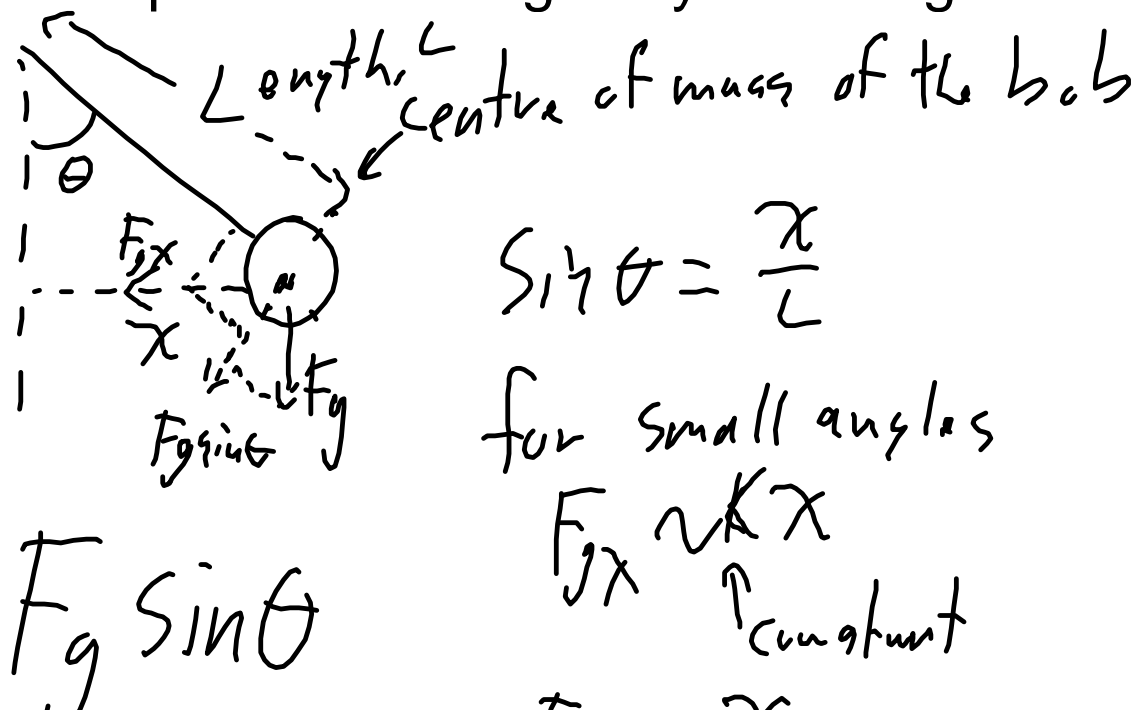 Length, L
centre of mass of the bob
θ
F_gx
x
F_g
F_g sinθ
sin θ = x/L
for small angles
F_gx ~ Kx
constant
F_g sinθ